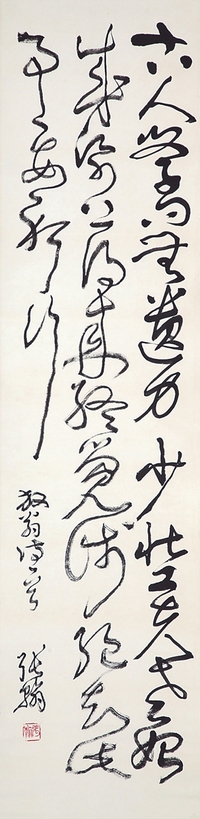 古人學問無遺力少壯工夫老始
成紙上得来終覺淺絕知此
事要躬行
放翁詩一首
張翰